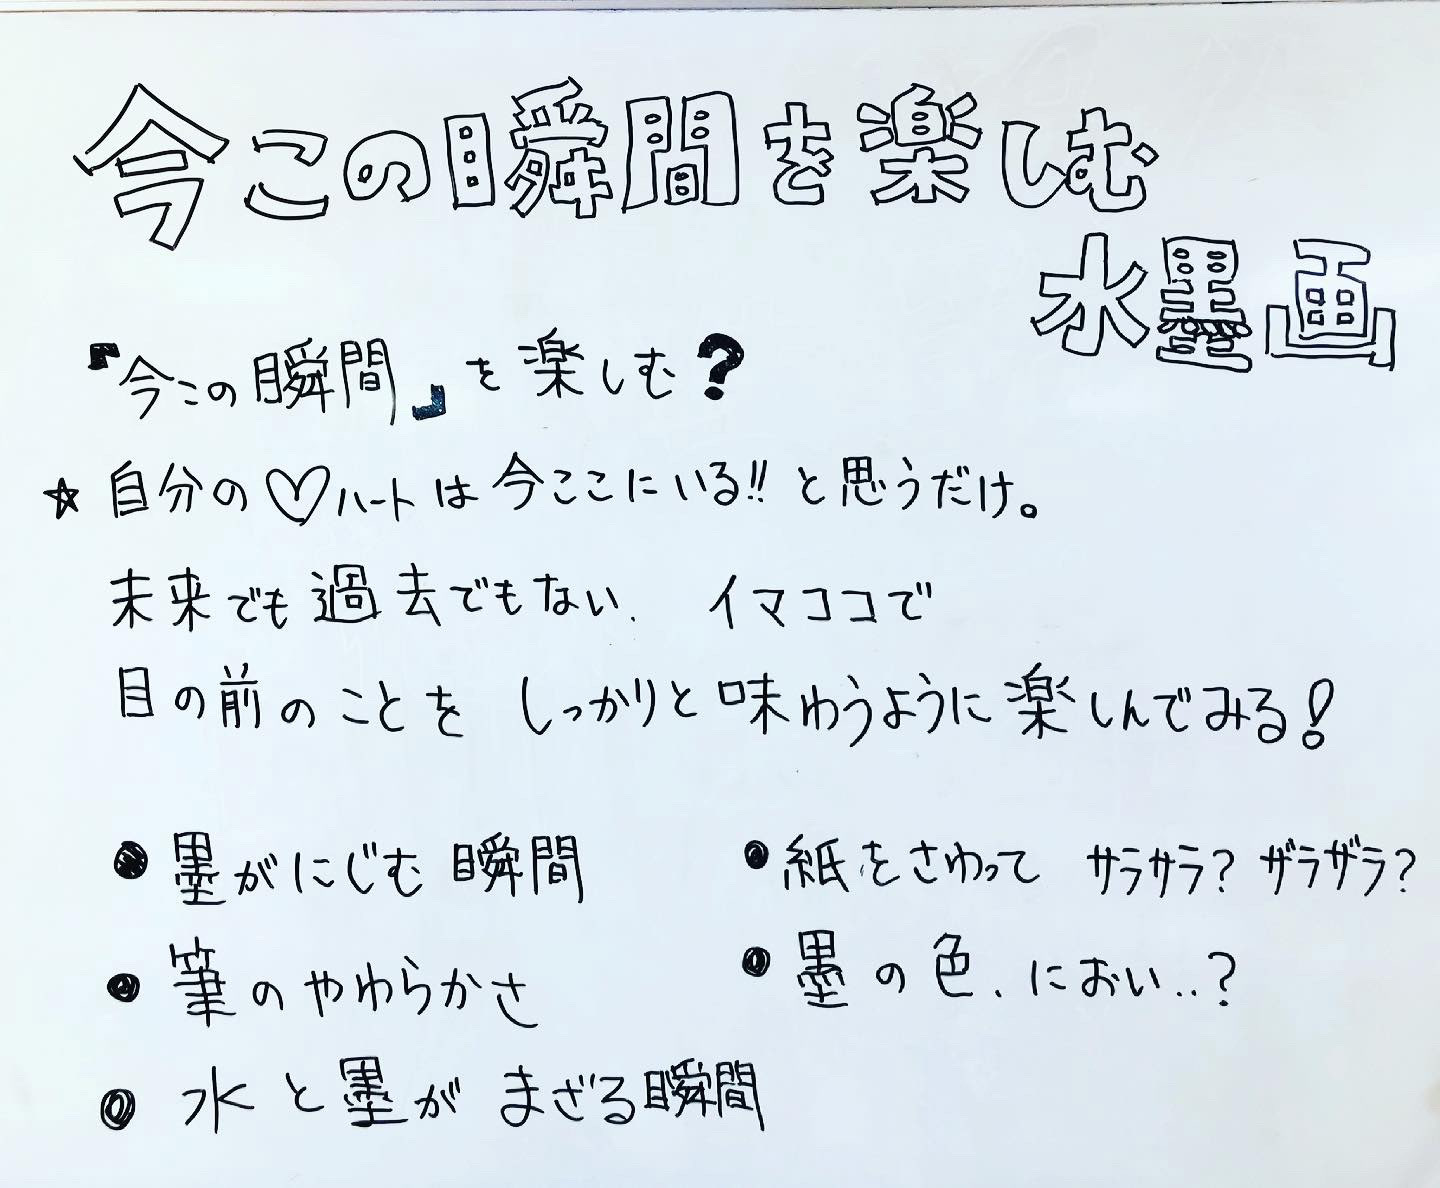 今この瞬間を楽しむ
水墨画
『今この瞬間』を楽しむ?
☆ 自分の♡ハートは今ここにいる!! と思うだけ。
未来でも過去でもない、イマココで
目の前のことを しっかりと味わうように楽しんでみる!
● 墨がにじむ瞬間
● 筆のやわらかさ
● 水と墨が まざる瞬間
● 紙をさわって サラサラ? ザラザラ?
● 墨の色、におい..?